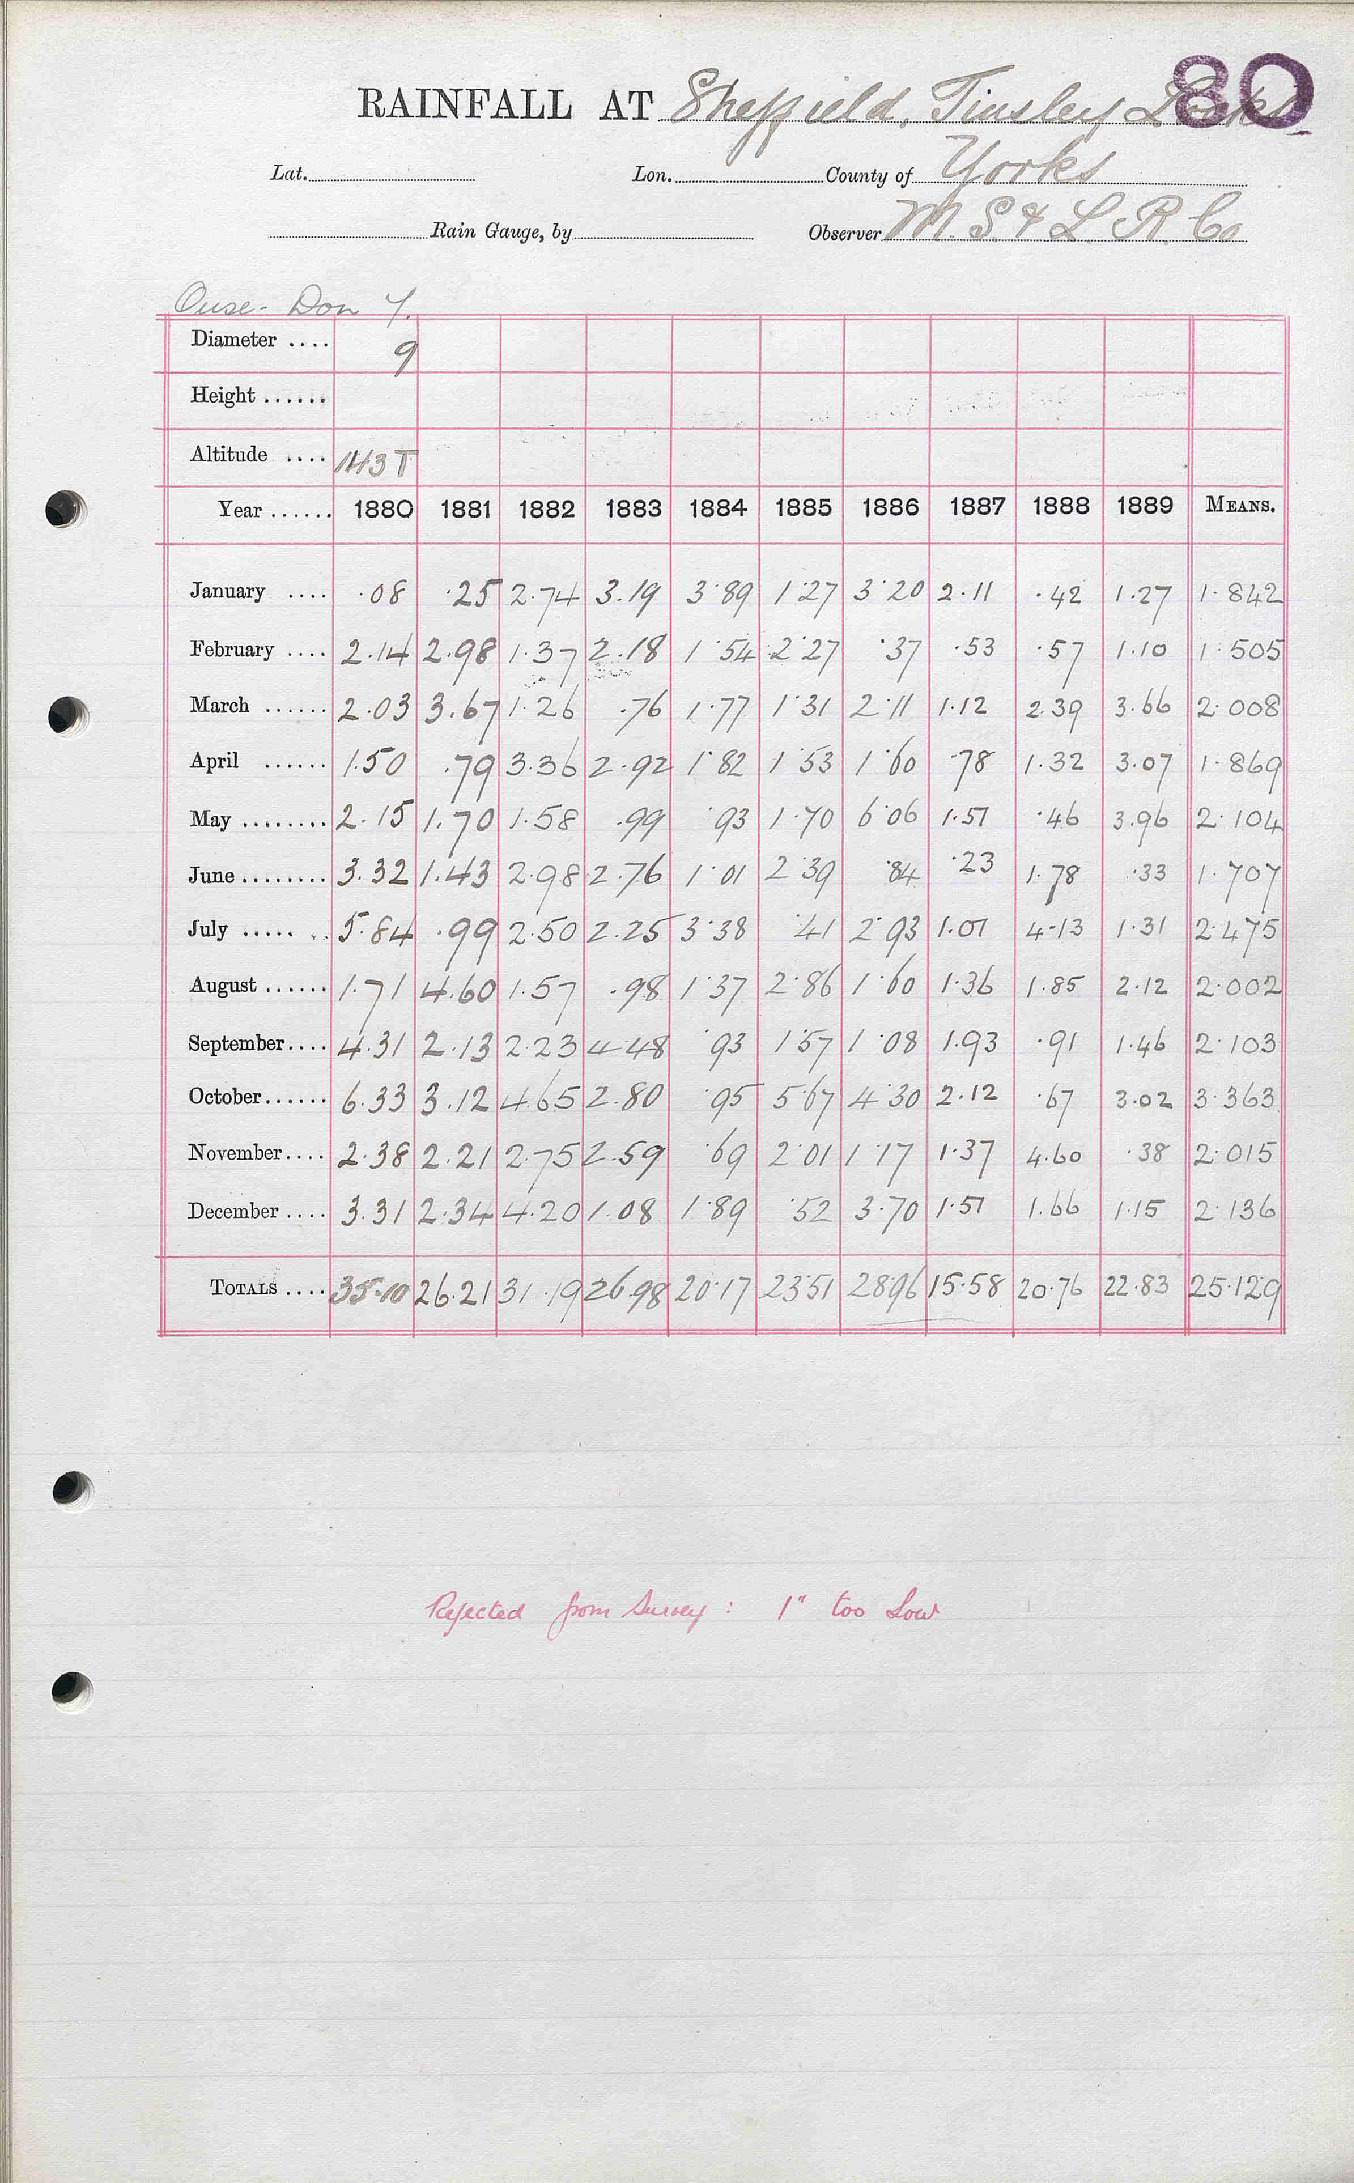 80
RAINFALL AT Sheffield, Tinsley Locks
Lat. Lon. County of Yorks
Rain Gauge, by Observer M. S. & L. R. Co
Ouse - Don Y.
Diameter .... 9
Height ......
Altitude .... 143 T
Year ...... 1880 1881 1882 1883 1884 1885 1886 1887 1888 1889 MEANS.
January .... .08 .25 2.74 3.19 3.89 1.27 3.20 2.11 .42 1.27 1.842
February .... 2.14 2.98 1.37 2.18 1.54 2.27 .37 .53 .57 1.10 1.505
March ...... 2.03 3.67 1.26 .76 1.77 1.31 2.11 1.12 2.39 3.66 2.008
April ...... 1.50 .79 3.36 2.92 1.82 1.53 1.60 .78 1.32 3.07 1.869
May ........ 2.15 1.70 1.58 .99 .93 1.70 6.06 1.51 .46 3.96 2.104
June ........ 3.32 1.43 2.98 2.76 1.01 2.39 .84 .23 1.78 .33 1.707
July ..... .. 5.84 .99 2.50 2.25 3.38 .41 2.93 1.01 4.13 1.31 2.475
August ...... 1.71 4.60 1.57 .98 1.37 2.86 1.60 1.36 1.85 2.12 2.002
September .... 4.31 2.13 2.23 4.48 .93 1.57 1.08 1.93 .91 1.46 2.103
October ...... 6.33 3.12 4.65 2.80 .95 5.67 4.30 2.12 .67 3.02 3.363
November .... 2.38 2.21 2.75 2.59 .69 2.01 1.17 1.37 4.60 .38 2.015
December .... 3.31 2.34 4.20 1.08 1.89 .52 3.70 1.51 1.66 1.15 2.136
TOTALS .... 35.10 26.21 31.19 26.98 20.17 23.51 28.96 15.58 20.76 22.83 25.129
Rejected from Survey : 1" too Low